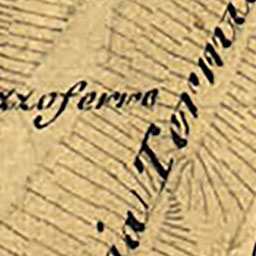 zzoferro
ia Termin